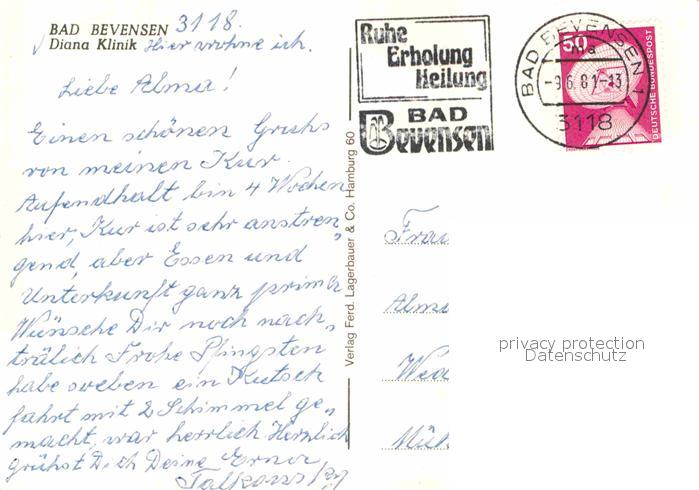 BAD BEVENSEN 3118.
Diana Klinik Hier wohne ich.
Liebe Alma!
Einen schönen Gruhs
von meinen Kur.
Aufendhalt bin 4 Wochen
hier, Kur ist sehr anstren„
gend, aber Essen und
Unterkunft ganz prima
Wünsche Dir noch nach„
träлich Frohe Pfingsten
habe soeben ein Kutsch
fahrt mit 2 Schimmel ge„
macht, war herrlich Herzlich
grühst Dich Deine Erna
Verlag Ferd. Lagerbauer & Co. Hamburg 60
Ruhe
Erholung
Heilung
BAD
Bevensen
BAD BEVENSEN 1
-9.6.81-13
3118
50
DEUTSCHE BUNDESPOST
Frau
Alma
privacy protection
Datenschutz